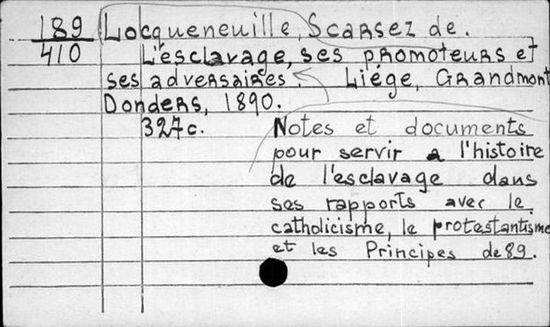 189 Locqueneuille, Scarsez de.
410 L'esclavage, ses promoteurs et
ses adversaires. Liége, Grandmont
Donders, 1890.
327c. Notes et documents
pour servir a l'histoire
de l'esclavage dans
ses rapports avec le
catholicisme, le protestantisme
et les Principes de 89.